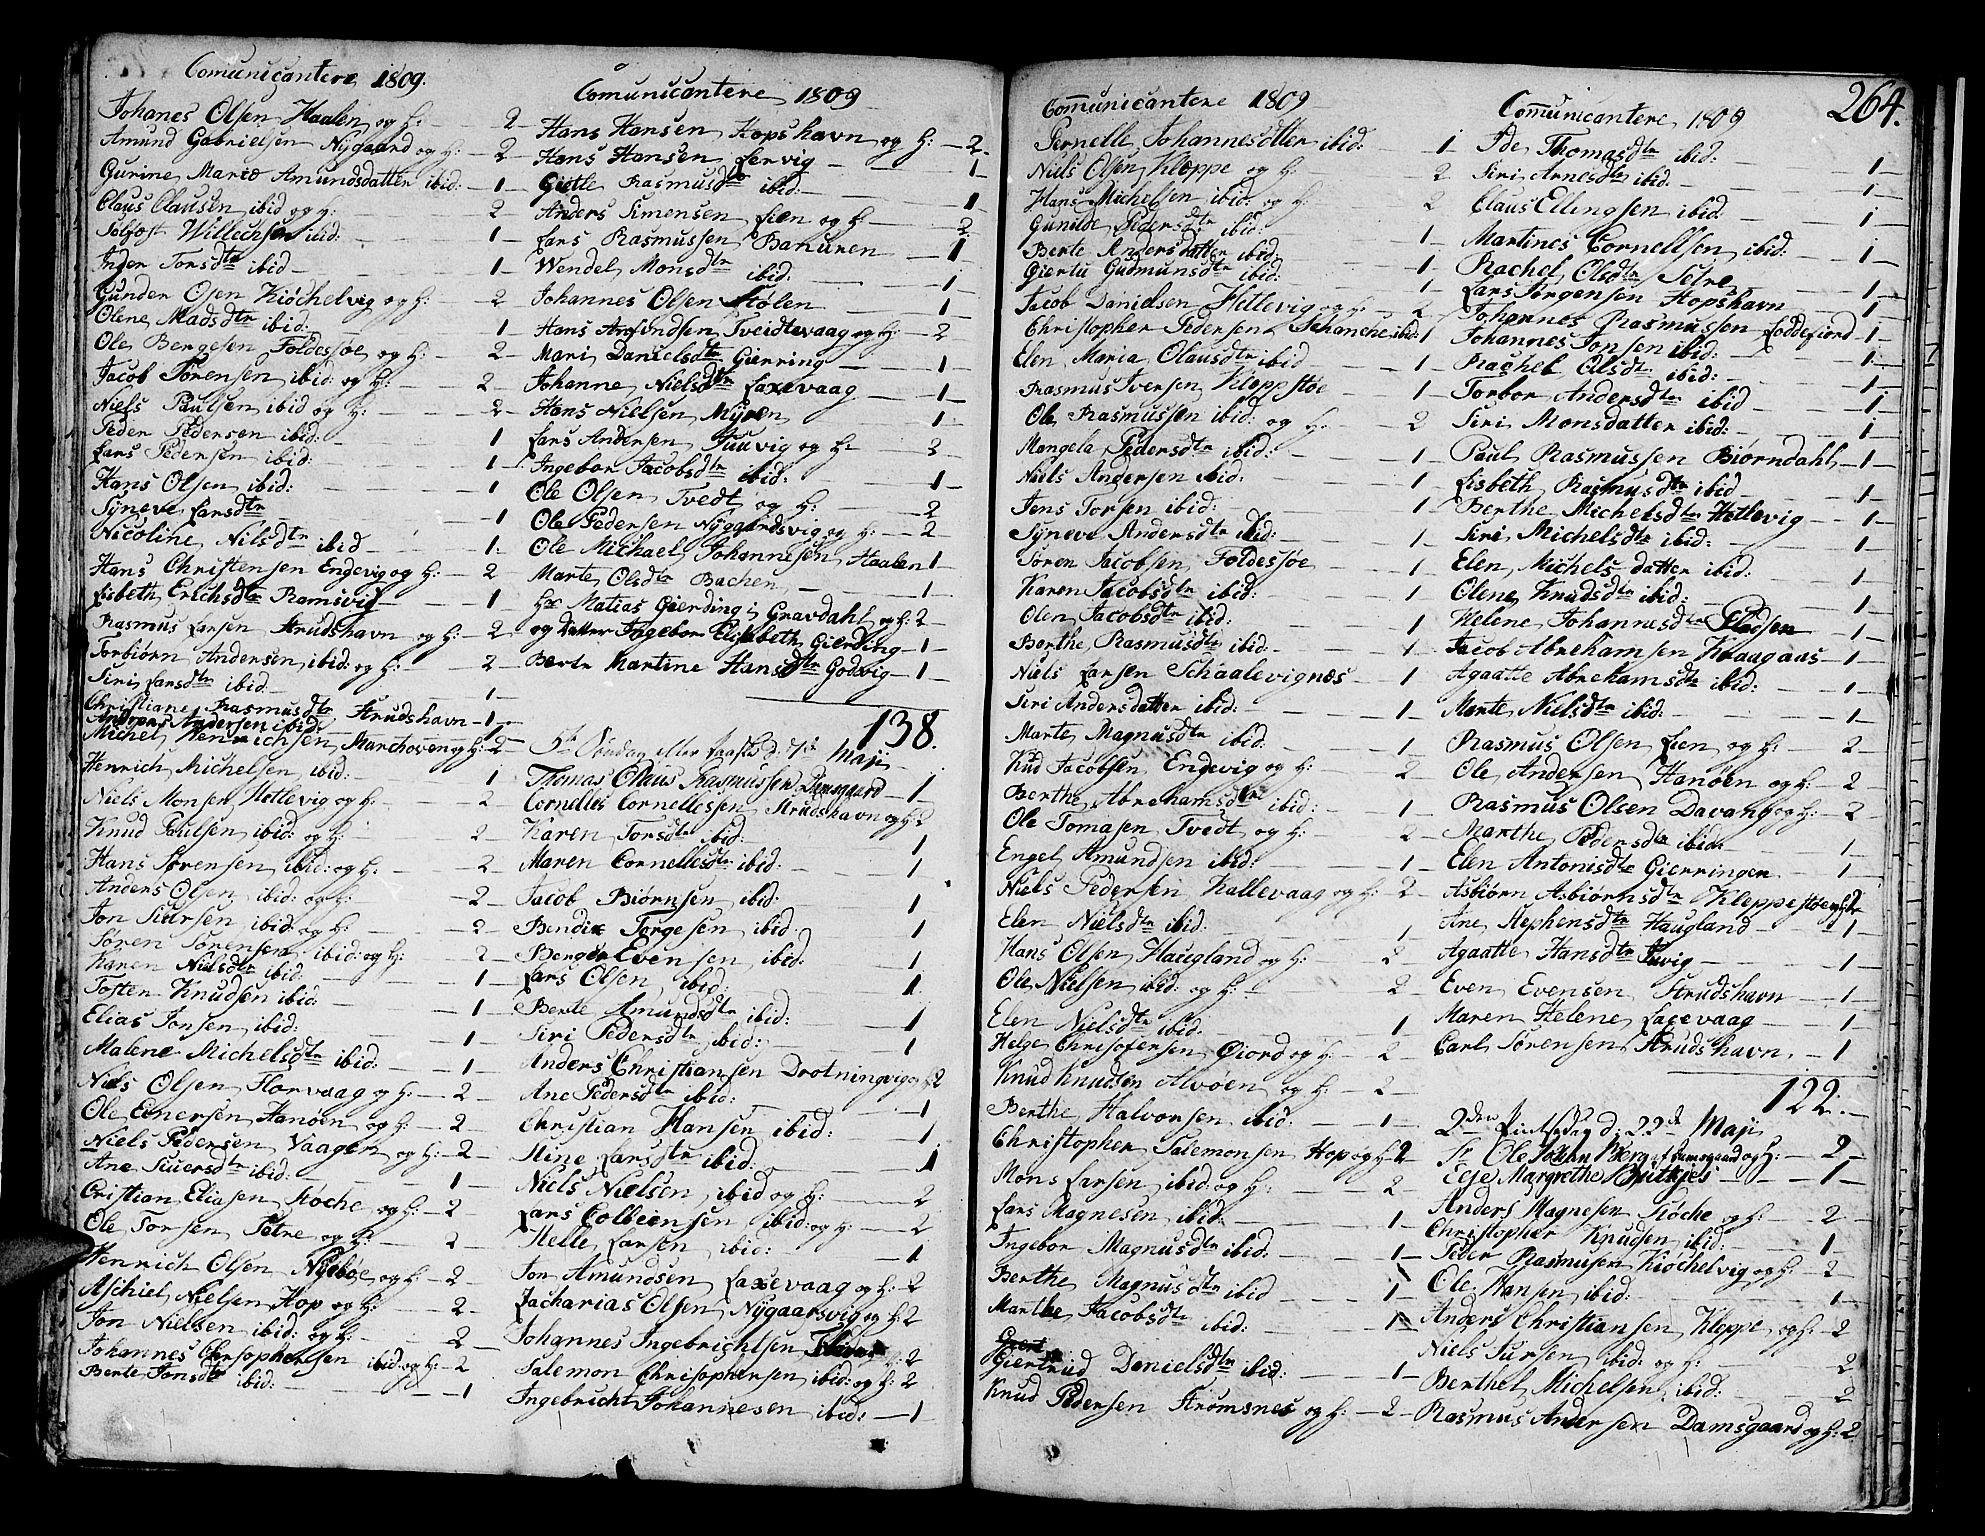 Comunicantere 1809.
Johanes Olsen Haalen og H: 2
Amund Gabrielsen Nygaard og H: 2
Gurine Marie Amundsdatter ibid: 1
Claus Clausen ibid og H: 2
Willechsen ibid: 1
Inger Torsdtr ibid 1
Gunder Olsen Kiøchelvig og H: 2
Olene Madsdtr ibid: 1
Ole Bergesen Foldessøe, og H: 2
Jacob Sørensen ibid: og H: 2
Niels Paulsen ibid og H: 2
Peder Pedersen ibid: 1
Lars Pedersen ibid: 1
Hans Olsen ibid: 1
Syneve Larsdtr 1
Nicoline Nilsdtr ibid 1
Hans Christensen Engevig og H: 2
Lisbeth Erichsdtr Ramsvig 1
Rasmus Larsen Strudshavn og H: 2
Torbiørn Andersen ibid: og H: 2
Siri Larsdtr ibid 1
Christiane Rasmusdtr Strudshavn 1
Andersen ibid:
Michel Henrichsen, Marchoven og H: 2
Henrich Michelsen ibid: 1
Niels Monsen Hetlevig og H: 2
Knud Paulsen ibid: og H: 2
Hans Sørensen ibid: og H: 2
Anders Olsen ibid: og H: 2
Jon Siursen ibid: og H: 2
Søren Sørensen ibid: og H: 2
Karen Nielsdtr ibid: 1
Tosten Knudsen ibid: 1
Elias Jonsen ibid: 1
Malene Michelsdtr ibid: 1
Niels Olsen Florvaag og H: 2
Ole Einersen Hanøen og H: 2
Niels Pedersen Vaagen og H: 2
Ane Siuersdtr ibid: 1
Cristian Eliasen Køche og H: 2
Ole Torsen Setre og H: 2
Henrich Olsen Nybøe og H: 2
Aschiel Nielsen Hop og H: 2
Jon Nielsen ibid: og H: 2
Johannes Chrsophersen ibid og H: 2
Berte Jonsdtr ibid: 1
Comunicantere 1809
Hans Hansen Hopshavn og H: 2
Hans Hansen Lervig 1
Giette Rasmusdtr ibid: 1
Anders Simensen Lien og H: 2
Lars Rasmussen Banuren 1
Wendel Monsdtr ibid: 1
Johannes Olsen Stølen 1
Hans Amundsen Tveidtevaag og H: 2
Mari Danielsdtr Gierring 1
Johanne Nielsdtr Laxevaag 1
Hans Nielsen Myren 1
Lars Andersen Juuvig og H: 2
Ingebor Jacobsdtr ibid: 1
Ole Olsen Tvedt og H: 2
Ole Pedersen Nygaardsvig og H: 2
Ole Michael Johannesen Haalen 1
Marte Olsdtr Bachen 1
Hr Matias Gierding i Gravdahl og H: 2
og datter Ingebor Elisabeth Gierding 1
Berte Martine Hansdtr Godvig 1
138.
5te Søndag efter Paaske d: 7de Maji
Thomas Claus Rasmussen Damsgaard 1
Cornelles Cornellessen Strudshavn og H: 2
Karen Torsdtr ibid: 1
Maren Cornellesdtr ibid: 1
Jacob Biørnsen ibid: 1
Bendix Torgesen ibid: 1
Berge Evensen ibid: 1
Lars Olsen ibid: 1
Berte Amundsdtr ibid: 1
Siri Pedersdtr ibid: 1
Anders Christiansen Drotningvig og H: 2
Ane Pedersdtr ibid: 1
Christian Hansen ibid: 1
Stine Larsdtr ibid: 1
Niels Nielsen ibid og H: 2
Lars Colbeensen ibid: og H: 2
Helle Larsen ibid: 1
Jon Amundsen Laxevaag og H: 2
Zacharias Olsen Nygaarsvig og H: 2
Johannes Ingebrichtsen og H: 2
Salemon Chrisophersen ibid: og H: 2
Ingebricht Johannesen ibid: 1
264.
Comunicantere 1809
Pernelle Johannesdtter ibid: 1
Niels Olsen Kleppe og H: 2
Hans Michelsen ibid: og H: 2
Gunilde Pedersdtr ibid: 1
Berte Andersdatter ibid 1
Giertu Gudmunsdtr ibid: 1
Jacob Danielsen Hetlevig og H: 2
Christopher Pedersen Schanche ibid: 1
Elen Maria Olausdtr ibid 1
Rasmus Iversen Kleppstøe 1
Ole Rasmussen ibid: og H: 2
Mangela Pedersdtr ibid: 1
Niels Andersen ibid: 1
Jens Torsen ibid: 1
Syneve Andersdtr ibid: 1
Søren Jacobsen Foldessøe 1
Karen Jacobsdtr ibid: 1
Olen Jacobsdtr ibid: 1
Berthe Rasmusdtr ibid: 1
Niels Larsen Schaalevignæs 1
Siri Andersdatter ibid: 1
Marte Magnusdtr ibid: 1
Knud Jacobsen Engevig og H: 2
Berthe Abrehamsdtr ibid: 1
Ole Tomasen Tvedt og H: 2
Engel Amundsen ibid: 1
Niels Pedersen Kallevaag og H: 2
Elen Nielsdtr ibid: 1
Hans Olsen Haugland og H: 2
Ole Nielsen ibid: og H: 2
Elen Nielsdtr ibid: 1
Helge Chrisofersen Øiord og H: 2
Knud Knudsen Alvøen og H: 2
Berthe Halvorsen ibid: 1
Christopher Salemonsen Hop og H: 2
Mons Larsen ibid: og H: 2
Lars Magnesen ibid: 1
Ingebor Magnusdtr ibid: 1
Berthe Magnusdtr ibid 1
Marthe Jacobsdtr ibid: 1
Giertrud Danielsdtr ibid: 1
Knud Pedersen Strømsnes og H: 2
Comunicantere 1809
Ide Thomasdtr ibid: 1
Siri Arnesdtr ibid: 1
Claus Ellingsen ibid: 1
Martines Cornellsen ibid: 1
Rachel Olsdtr Setre 1
Lars Jørgensen Hopshavn 1
Johannes Rasmussen Loddefiord 1
Johannes Jonsen ibid: 1
Rachel Olsdtr ibid: 1
Torbor Andersdtr ibid 1
Siri Monsdatter ibid: 1
Paul Rasmussen Biørndahl 1
Lisbeth Rasmusdtr ibid 1
Berthe Michelsdtr Hetlevig 1
Siri Michelsdtr ibid: 1
Elen Michelsdatter ibid: 1
Olene Knudsdtr ibid: 1
Helene Johannesdtr Pladsen 1
Jacob Abrehamsen Kraagaas 1
Agaatte Abrehamsdtr ibid: 1
Marte Nielsdtr ibid: 1
Rasmus Olsen Lien og H: 2
Ole Andersen Hanøen og H: 2
Rasmus Olsen Davang og H: 2
Marthe Pedersdtr ibid: 1
Elen Antonisdtr Gierringen 1
Asbiørn Asbiørnsdtr Kleppestøe
Ane Stephensdtr Haugland 1
Agaatte Hansdtr Juvig 1
Even Evensen Strudshavn 1
Maren Helene Laxevaag 1
Carl Sørensen Strudshavn 1
122.
2den Pintsedag d: 22de Maji
Sr Ole Johan Berg af Damsgaard og H: 2
Else Margrethe 1
Anders Magnesen Køche og H: 2
Christopher Knudsen ibid: 1
Peder Rasmusen Kiøchelvig og H: 2
Ole Hansen ibid: 1
Anders Christiansen Kleppe og H: 2
Niels Siursen ibid: og H: 2
Berthel Michelsen ibid: 2
Rasmus Andersen Damsgaard og H: 2